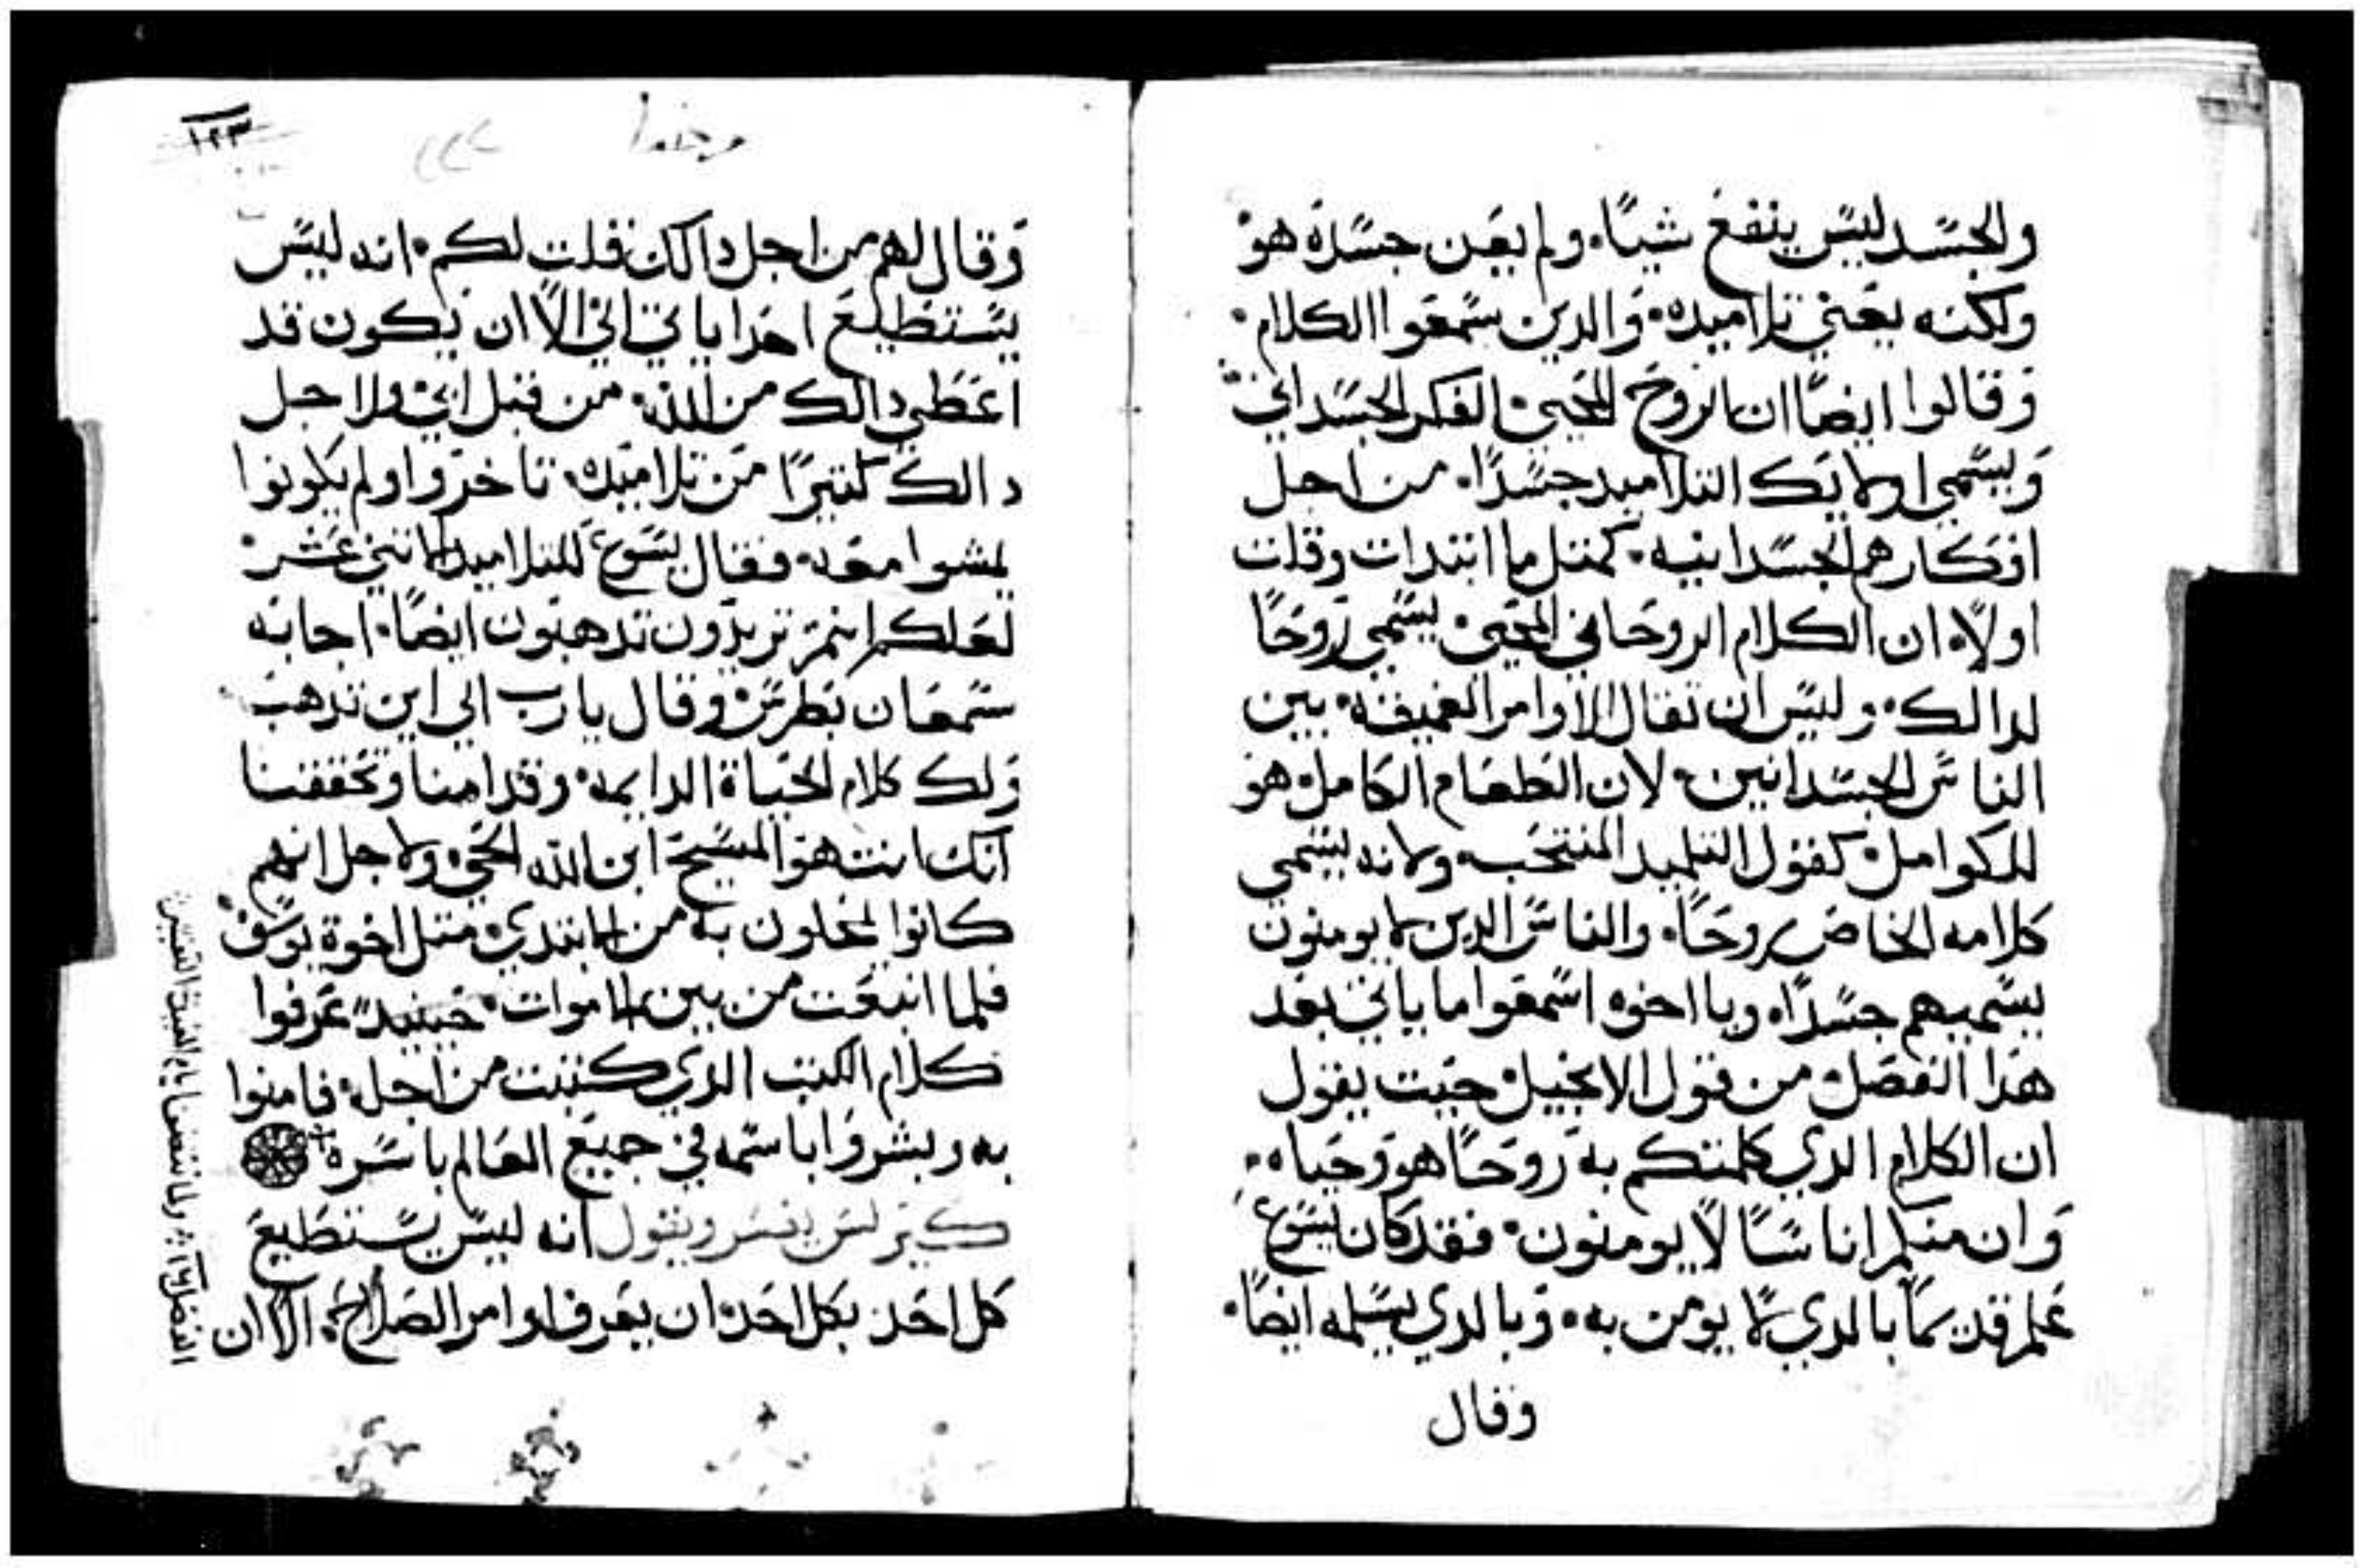 والجسد ليس ينفع شياً، ولم يعن جسده هو
ولكنه يعني تلاميده، والدين سمعوا الكلام،
وقالوا ايضاً ان الروح المحيي الفكر الجسداني
ويسمي اولايك التلاميد جسداً، من اجل
افكارهم الجسدانيه، كمتل ما ابتدات وقلت
اولاً، ان الكلام الروحاني المحيي يسمي روحاً
لدالك، وليس ان تقال الاوامر العميقه، بين
الناس الجسدانيين، لان الطعام الكامل هو
للكوامل كقول التلميد المنتخب، ولانه يسمي
كلامه الخاص روحاً، والناس الدين لا يومنون
يسميهم جسداً، ويا اخوه اسمعوا ما ياتي بعد
هدا الفصل من قول الانجيل حيت يقول
ان الكلام الدي كلمتكم به روحاً هو وحياه،
وان منكم اناساً لا يومنون، فقد كان يسوع
علم قديماً بالدي لا يومن به، وبالدي يسلمه ايضاً،
وقال
١٢٣
وقال لهم من اجل دالك قلت لكم، انه ليس
يستطيع احدا ياتي الي الا ان يكون قد
اعطي دالك من الله، من قبل ابي ولاجل
دالك كتيراً من تلاميده، تاخروا ولم يكونوا
يمشوا معه، فقال يسوع للتلاميد الاتني عشر
لعلكم انتم تريدون تدهبون ايضاً، اجابه
سمعان بطرس وقال يارب الي اين ندهب
ولك كلام الحياة الدايمه، وقد امنا وتحققنا
انك انت هو المسيح ابن الله الحي، ولاجل انهم
كانوا يبخلون به من الابتدي، متل اخوة يوسف
فلما انبعت من بين الاموات، حينيدً عرفوا
كلام الكتب الدي كتبت من اجله فامنوا
به وبشروا باسمه في جميع العالم باسره
كيرلس يفسر ويقول انه ليس يستطيع
كل احد بكل احد ان يعرف اوامر الصلاح، الا ان